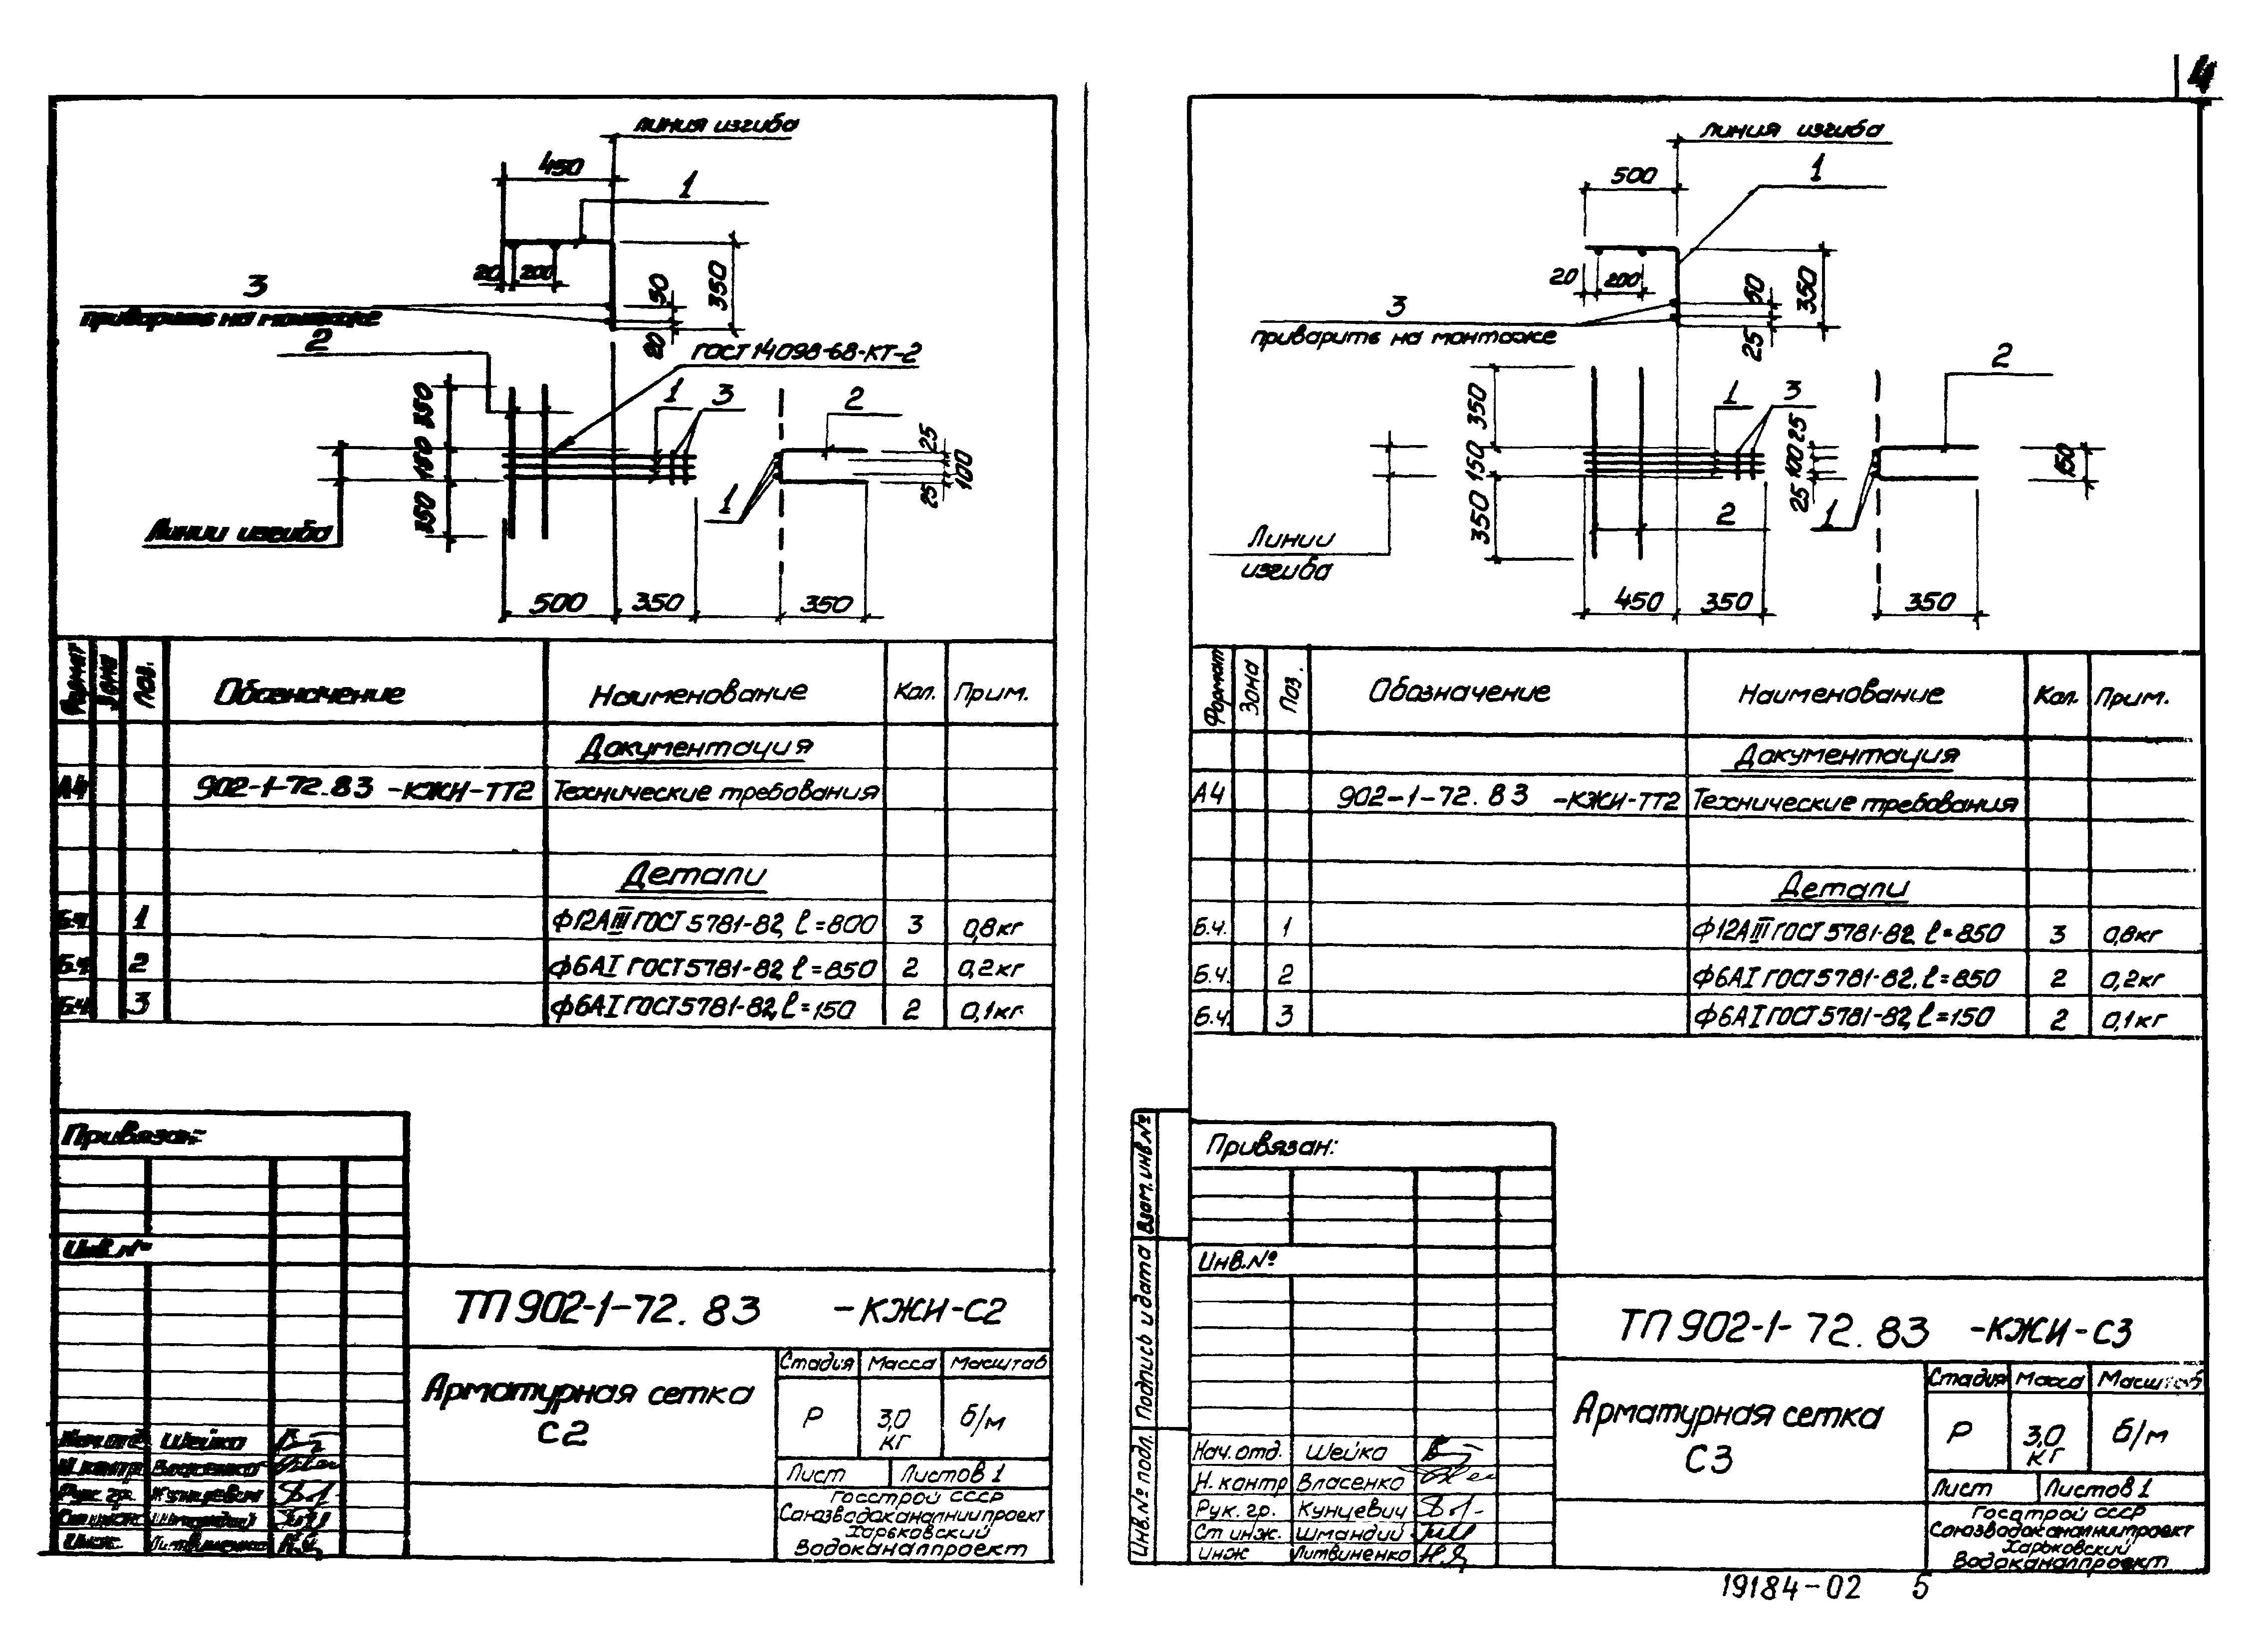 4
линия изгиба
450
1
20
200
3
приварить на монтаже
50
350
20
2
ГОСТ 14098-68-КТ-2
350
150
350
1
3
2
25
100
25
1
Линии изгиба
500
350
350
Формат
Зона
Поз.
Обозначение
Наименование
Кол.
Прим.
Документация
А4
902-1-72.83 -КЖИ-ТТ2
Технические требования
Детали
Б.ч. 1 ф12АIII ГОСТ 5781-82, ℓ=800 3 0,8кг
Б.ч. 2 ф6АI ГОСТ 5781-82, ℓ=850 2 0,2кг
Б.ч. 3 ф6АI ГОСТ 5781-82, ℓ=150 2 0,1кг
Привязан:
Инв.№
ТП 902-1-72.83 -КЖИ-С2
Арматурная сетка
С2
Стадия Масса Масштаб
Р 3,0 кг б/м
Лист Листов 1
Госстрой СССР
Союзводоканалниипроект
Харьковский
Водоканалпроект
Нач.отд. Шейко
Н.контр Власенко
Рук. гр. Кунцевич
Ст инж. Шмандий
Инж. Литвиненко
линия изгиба
500
1
20
200
3
приварить на монтаже
50
350
25
350
150
350
1
3
25
100
25
1
2
150
2
Линии
изгиба
450
350
350
Формат
Зона
Поз.
Обозначение
Наименование
Кол.
Прим.
Документация
А4
902-1-72.83 -КЖИ-ТТ2
Технические требования
Детали
Б.ч. 1 ф12АIII ГОСТ 5781-82, ℓ=850 3 0,8кг
Б.ч. 2 ф6АI ГОСТ 5781-82, ℓ=850 2 0,2кг
Б.ч. 3 ф6АI ГОСТ 5781-82, ℓ=150 2 0,1кг
Привязан:
Инв.№
Взам.инв.№
Подпись и дата
Инв.№ подл.
ТП 902-1-72.83 -КЖИ-С3
Арматурная сетка
С3
Стадия Масса Масштаб
Р 3,0 кг б/м
Лист Листов 1
Госстрой СССР
Союзводоканалниипроект
Харьковский
Водоканалпроект
Нач. отд. Шейко
Н. контр Власенко
Рук. гр. Кунцевич
Ст инж. Шмандий
инж Литвиненко
19184-02 5